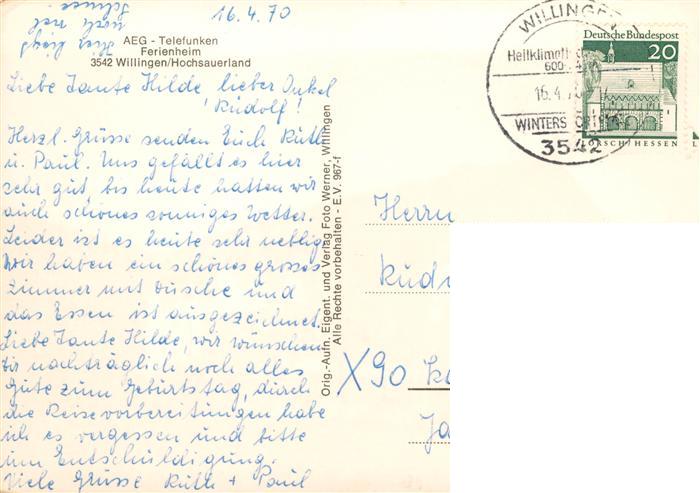 16.4.70
Hier liegt
noch viel
Schnee
AEG - Telefunken
Ferienheim
3542 Willingen/Hochsauerland
Liebe Tante Hilde lieber Onkel
Rudolf!
Herzl. Grüsse senden Euch Ruth
u. Paul. Uns gefällt es hier
sehr gut, bis heute hatten wir
auch schönes sonniges Wetter.
Leider ist es heute sehr neblig
Wir haben ein schönes grosses
Zimmer mit Dusche und
das Essen ist ausgezeichnet.
Liebe Tante Hilde, wir wünschen
Dir nachträglich noch alles
Gute zum Geburtstag, durch
die Reisevorbereitungen habe
ich es vergessen und bitte
um Entschuldigung.
Viele Grüsse Ruth + Paul
Orig.-Aufn. Eigent. und Verlag Foto Werner, Willingen
Alle Rechte vorbehalten - E.V. 967-f
WILLINGE
Heilklimat
600
16.4.70
WINTERS ORT
3542
Deutsche Bundespost
20
LORSCH/HESSEN
Herrn
Rud
X90
Ja